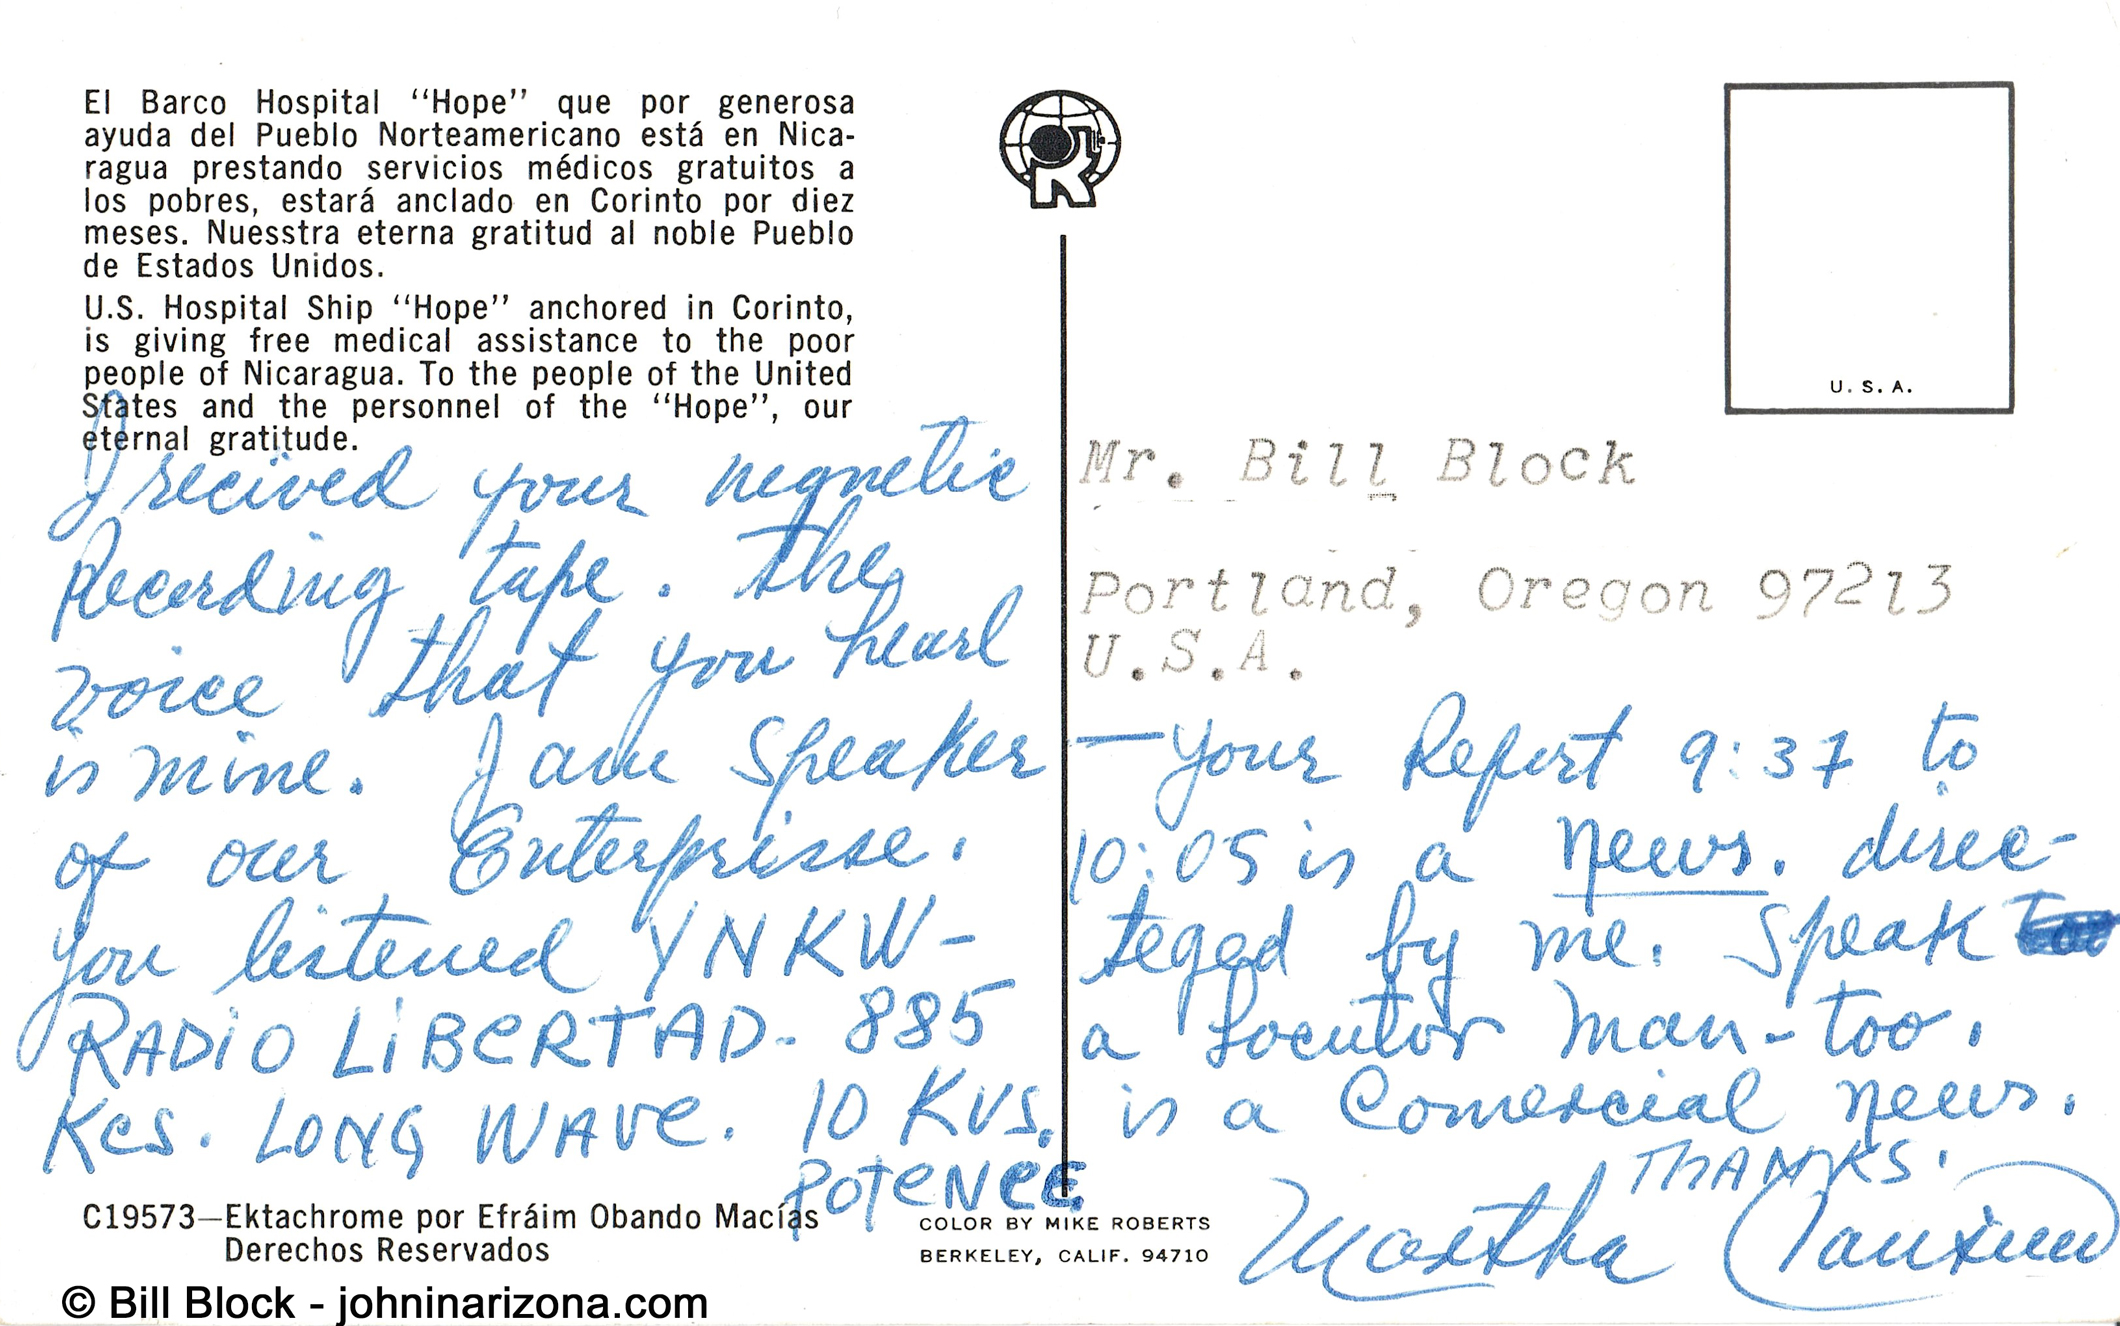 El Barco Hospital “Hope” que por generosa
ayuda del Pueblo Norteamericano está en Nica-
ragua prestando servicios médicos gratuitos a
los pobres, estará anclado en Corinto por diez
meses. Nuesstra eterna gratitud al noble Pueblo
de Estados Unidos.
U.S. Hospital Ship “Hope” anchored in Corinto,
is giving free medical assistance to the poor
people of Nicaragua. To the people of the United
States and the personnel of the “Hope”, our
eternal gratitude.
I recived your negnetic
Recording tape. The
voice that you hearl
is mine. I am speaker
of our Enterprisse.
you listened YNKW-
RADiO LiBERTAD- 885
Kcs. LONG WAVE. 10 KVS.
POTENCE
C19573—Ektachrome por Efráim Obando Macías
Derechos Reservados
COLOR BY MIKE ROBERTS
BERKELEY, CALIF. 94710
U.S.A.
Mr. Bill Block
Portland, Oregon 97213
U.S.A.
—your Report 9:37 to
10:05 is a news. direc-
teged by me. Speak
a locutor man-too.
is a Comercial news.
THANKS.
Martha
© Bill Block - johninarizona.com